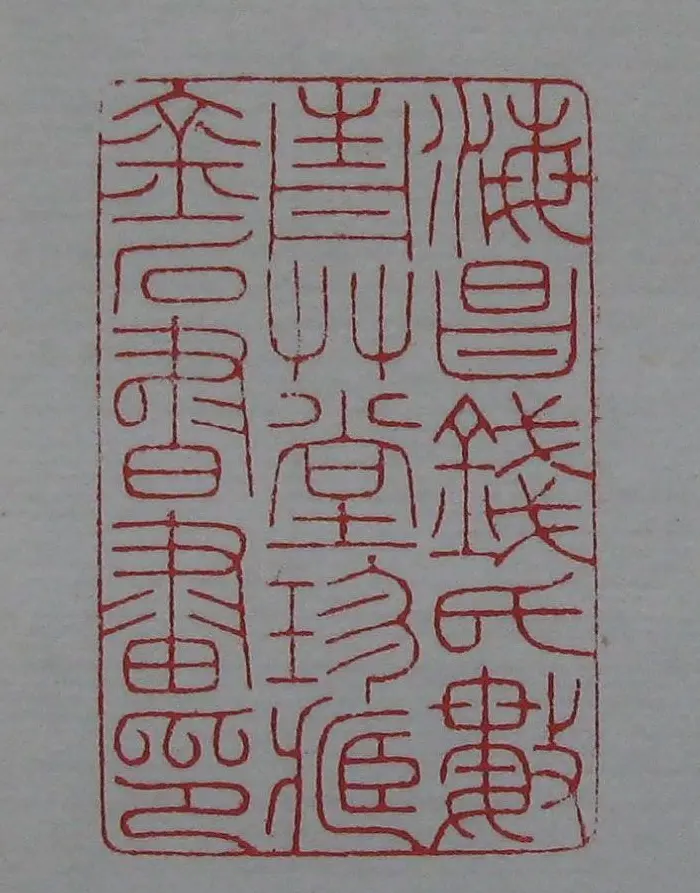 海昌錢氏數
青艸堂珍臧
金石書畫印